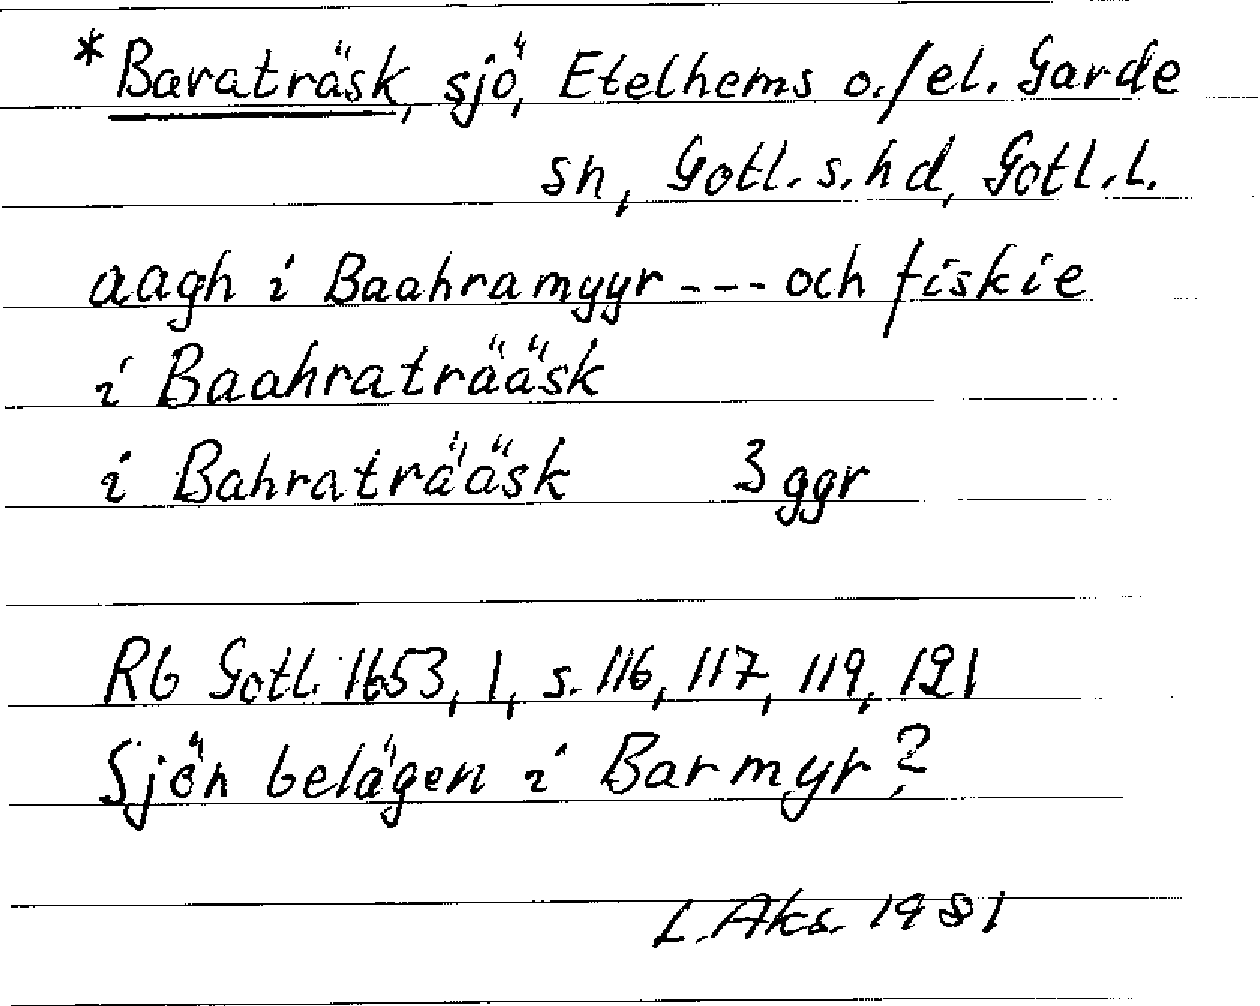 *Baraträsk, sjö, Etelhems o./el. Garde
sn, Gotl. s. hd, Gotl. l.
aagh i Baahramyyr --- och fiskie
i Baahraträäsk
i Bahraträäsk 3 ggr
Rb Gotl. 1653, 1, s. 116, 117, 119, 121
Sjön belägen i Barmyr?
L. Aks. 1981